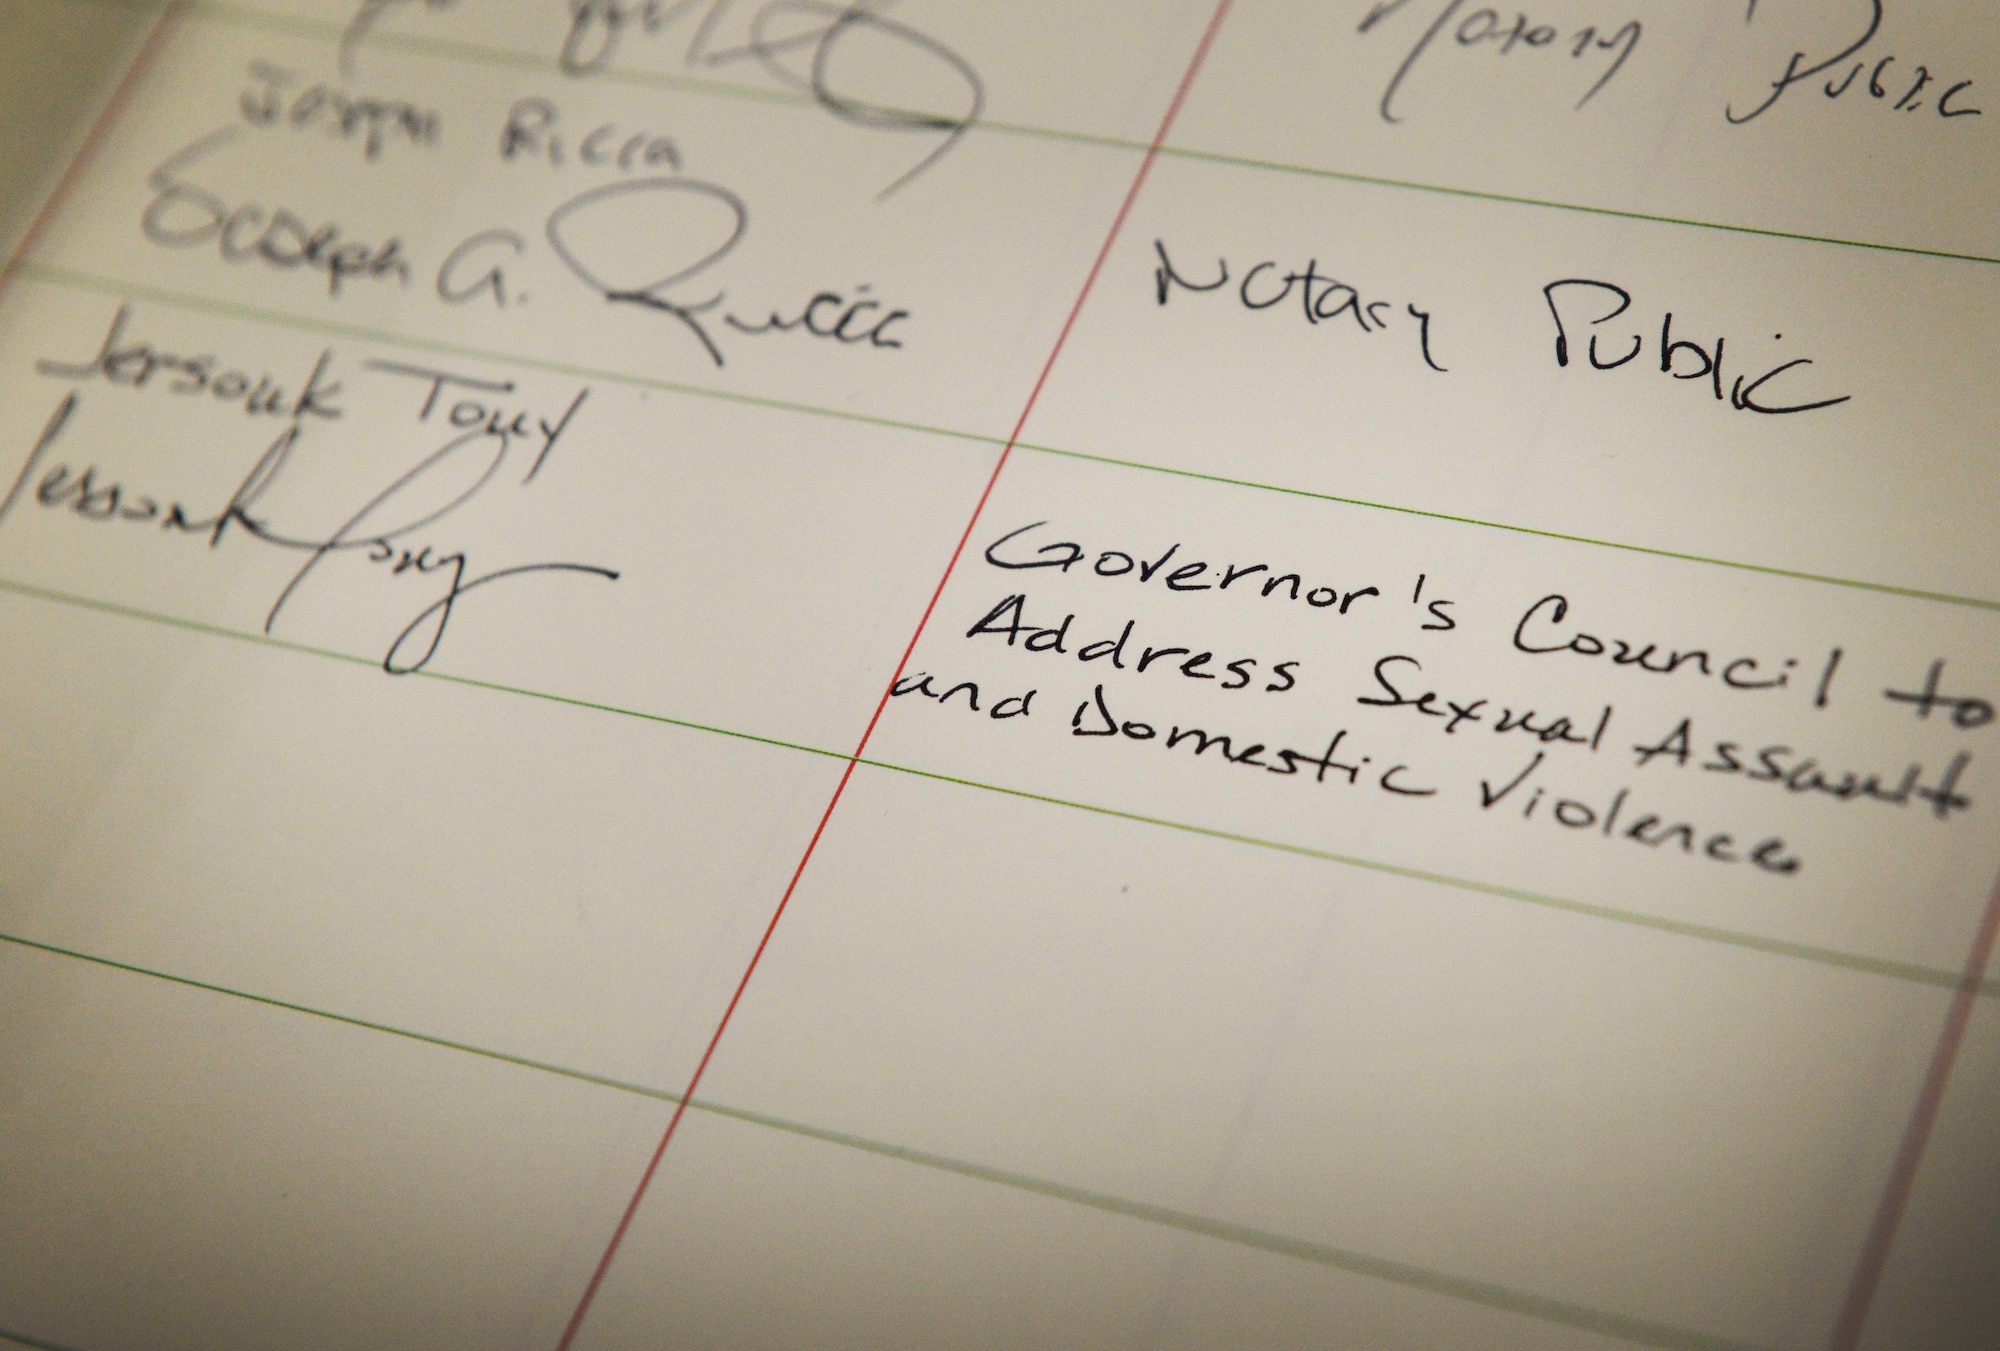 Notary Public
Joseph Ricca
Joseph A. Ricca
Notary Public
Jersouk Touy
Jersouk Touy
Governor's Council to
Address Sexual Assault
and Domestic Violence